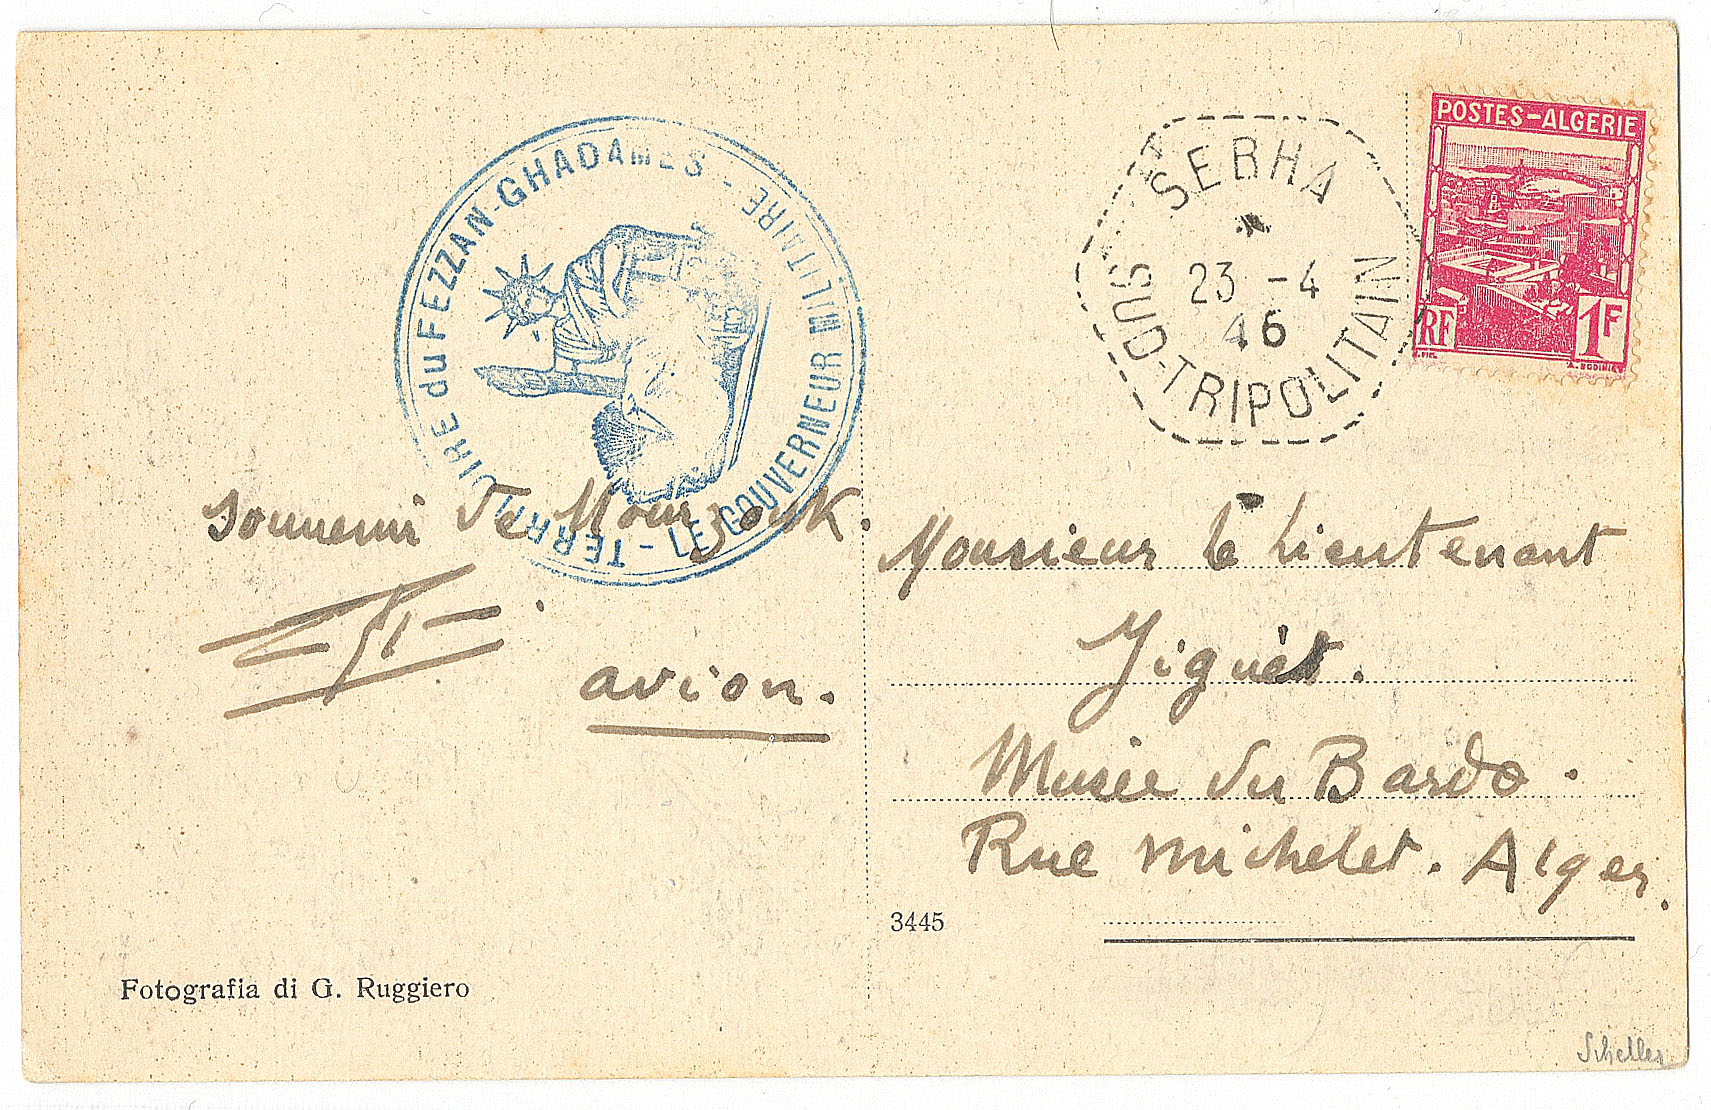 TERRITOIRE du FEZZAN-GHADAMES - LE GOUVERNEUR MILITAIRE -
SEBHA
23 -4
46
SUD-TRIPOLITAIN
POSTES-ALGERIE
RF
1F
souvenir de Mourzouk.
avion.
Monsieur le Lieutenant
Musée du Bardo.
Rue Michelet. Alger.
3445
Fotografia di G. Ruggiero